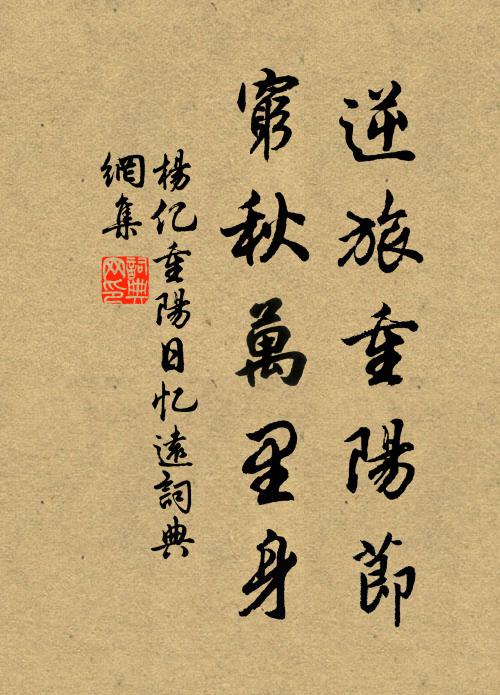 逆旅重陽節
窮秋萬里身
楊亿重陽日忆遠詞典
網集
詞典
网印